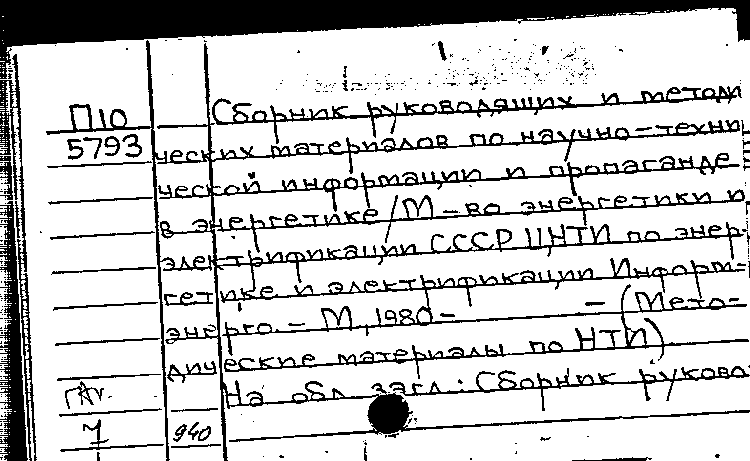 П10 Сборник руководящих и методи
5793 ческих материалов по научно-техни
ческой информации и пропаганде
в энергетике/М-во энергетики и
электрификации СССР ЦНТИ по энер-
гетике и электрификации Информ-
энерго. – М, 1980- – (Мето-
дические материалы по НТИ)
На обл загл.: Сборник руково
940